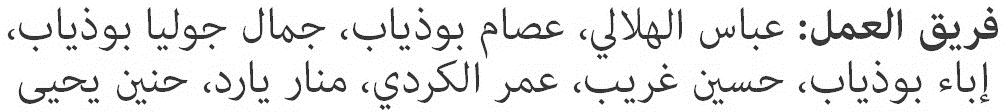 فريق العمل: عباس الهلالي، عصام بوذياب، جمال جوليا بوذياب،
إباء بوذياب، حسين غريب، عمر الكردي، منار يارد، حنين يحيى